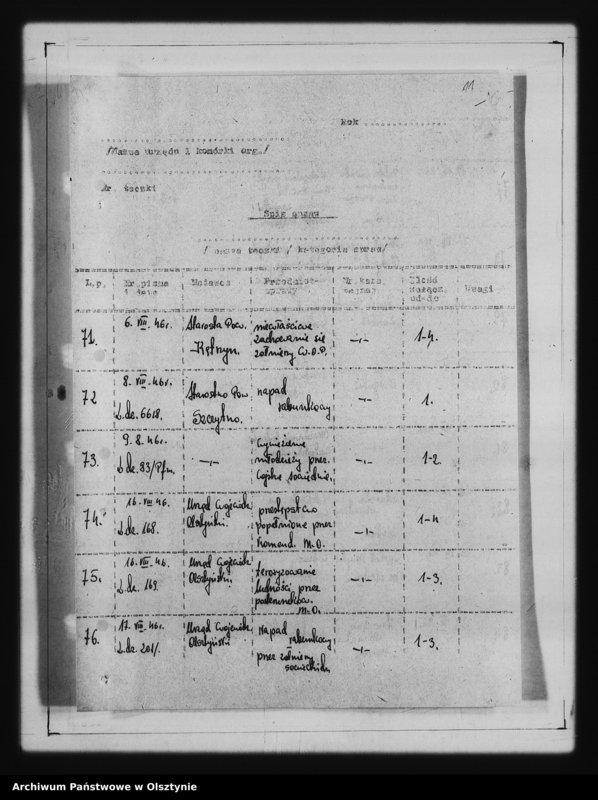 11
Rok ................
/Nazwa urzędu i komórki org./
Nr. teczki
Spis spraw
/ nazwa teczki / kategoria spraw/
L.p. Nr. pisma i data Nadawca Przedmiot sprawy Nr. Ilość załącz. od-do Uwagi
71. 6. VIII. 46r. Starosta Pow. Kętrzyn. niewłaściwe zachowanie się żołnierzy W.O.P. -„- 1-4.
72 8. VIII. 46r. L.dz. 6618. Starostwo Pow. Szczytno. napad rabunkowy -„- 1.
73. 9. 8. 46r. L.dz. 83/Pfn. -„- młodzieży przez -„- 1-2.
74. 16. VIII 46. L.dz. 168. Urząd Wojewódz. Olsztyński. przestępstwo popełnione przez Komend. M.O. -„- 1-4
75. 16. VIII. 46. L.dz. 169. Urząd Wojewódz. Olsztyński. terroryzowanie ludności przez posterunków. M.O. -„- 1-3.
76. 17. VIII. 46r. L.dz. 201/. Urząd Wojewódz. Olsztyński Napad rabunkowy przez żołnierzy sowieckich -„- 1-3.
Archiwum Państwowe w Olsztynie